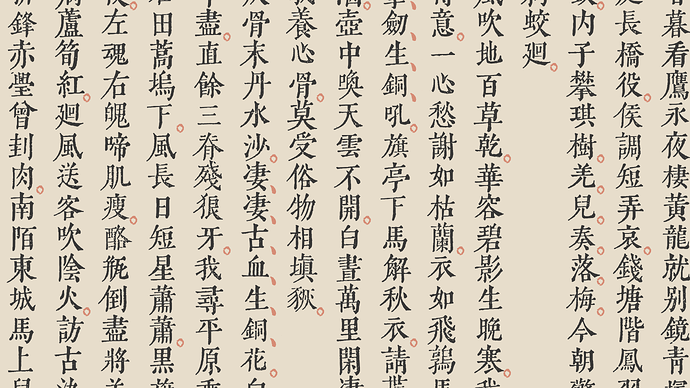 暮看鷹永夜棲黃龍就别鏡青
長橋役。侯調短弄哀。錢塘階鳳
内子攀琪樹。羌兒奏落梅。今朝
蛟迴。
風吹地百草乾。華容碧影生晚寒。
意。一心愁謝如枯蘭。衣如飛鶉馬
劒生銅吼。旗亭下馬解秋衣。請
壺中喚天雲不開。白晝萬里閑淒
養心骨。莫受俗物相塡豗。
骨末丹水沙。凄凄古血生銅花。白
盡。直餘三脊殘狼牙。我尋平原乘
田蒿塢下。風長日短星蕭蕭。黑旗
左魂右魄啼肌瘦。酪瓶倒盡將羊
蘆筍紅。廻風送客吹陰火。訪古
鋒赤璺曾刲肉。南陌東城馬上兒